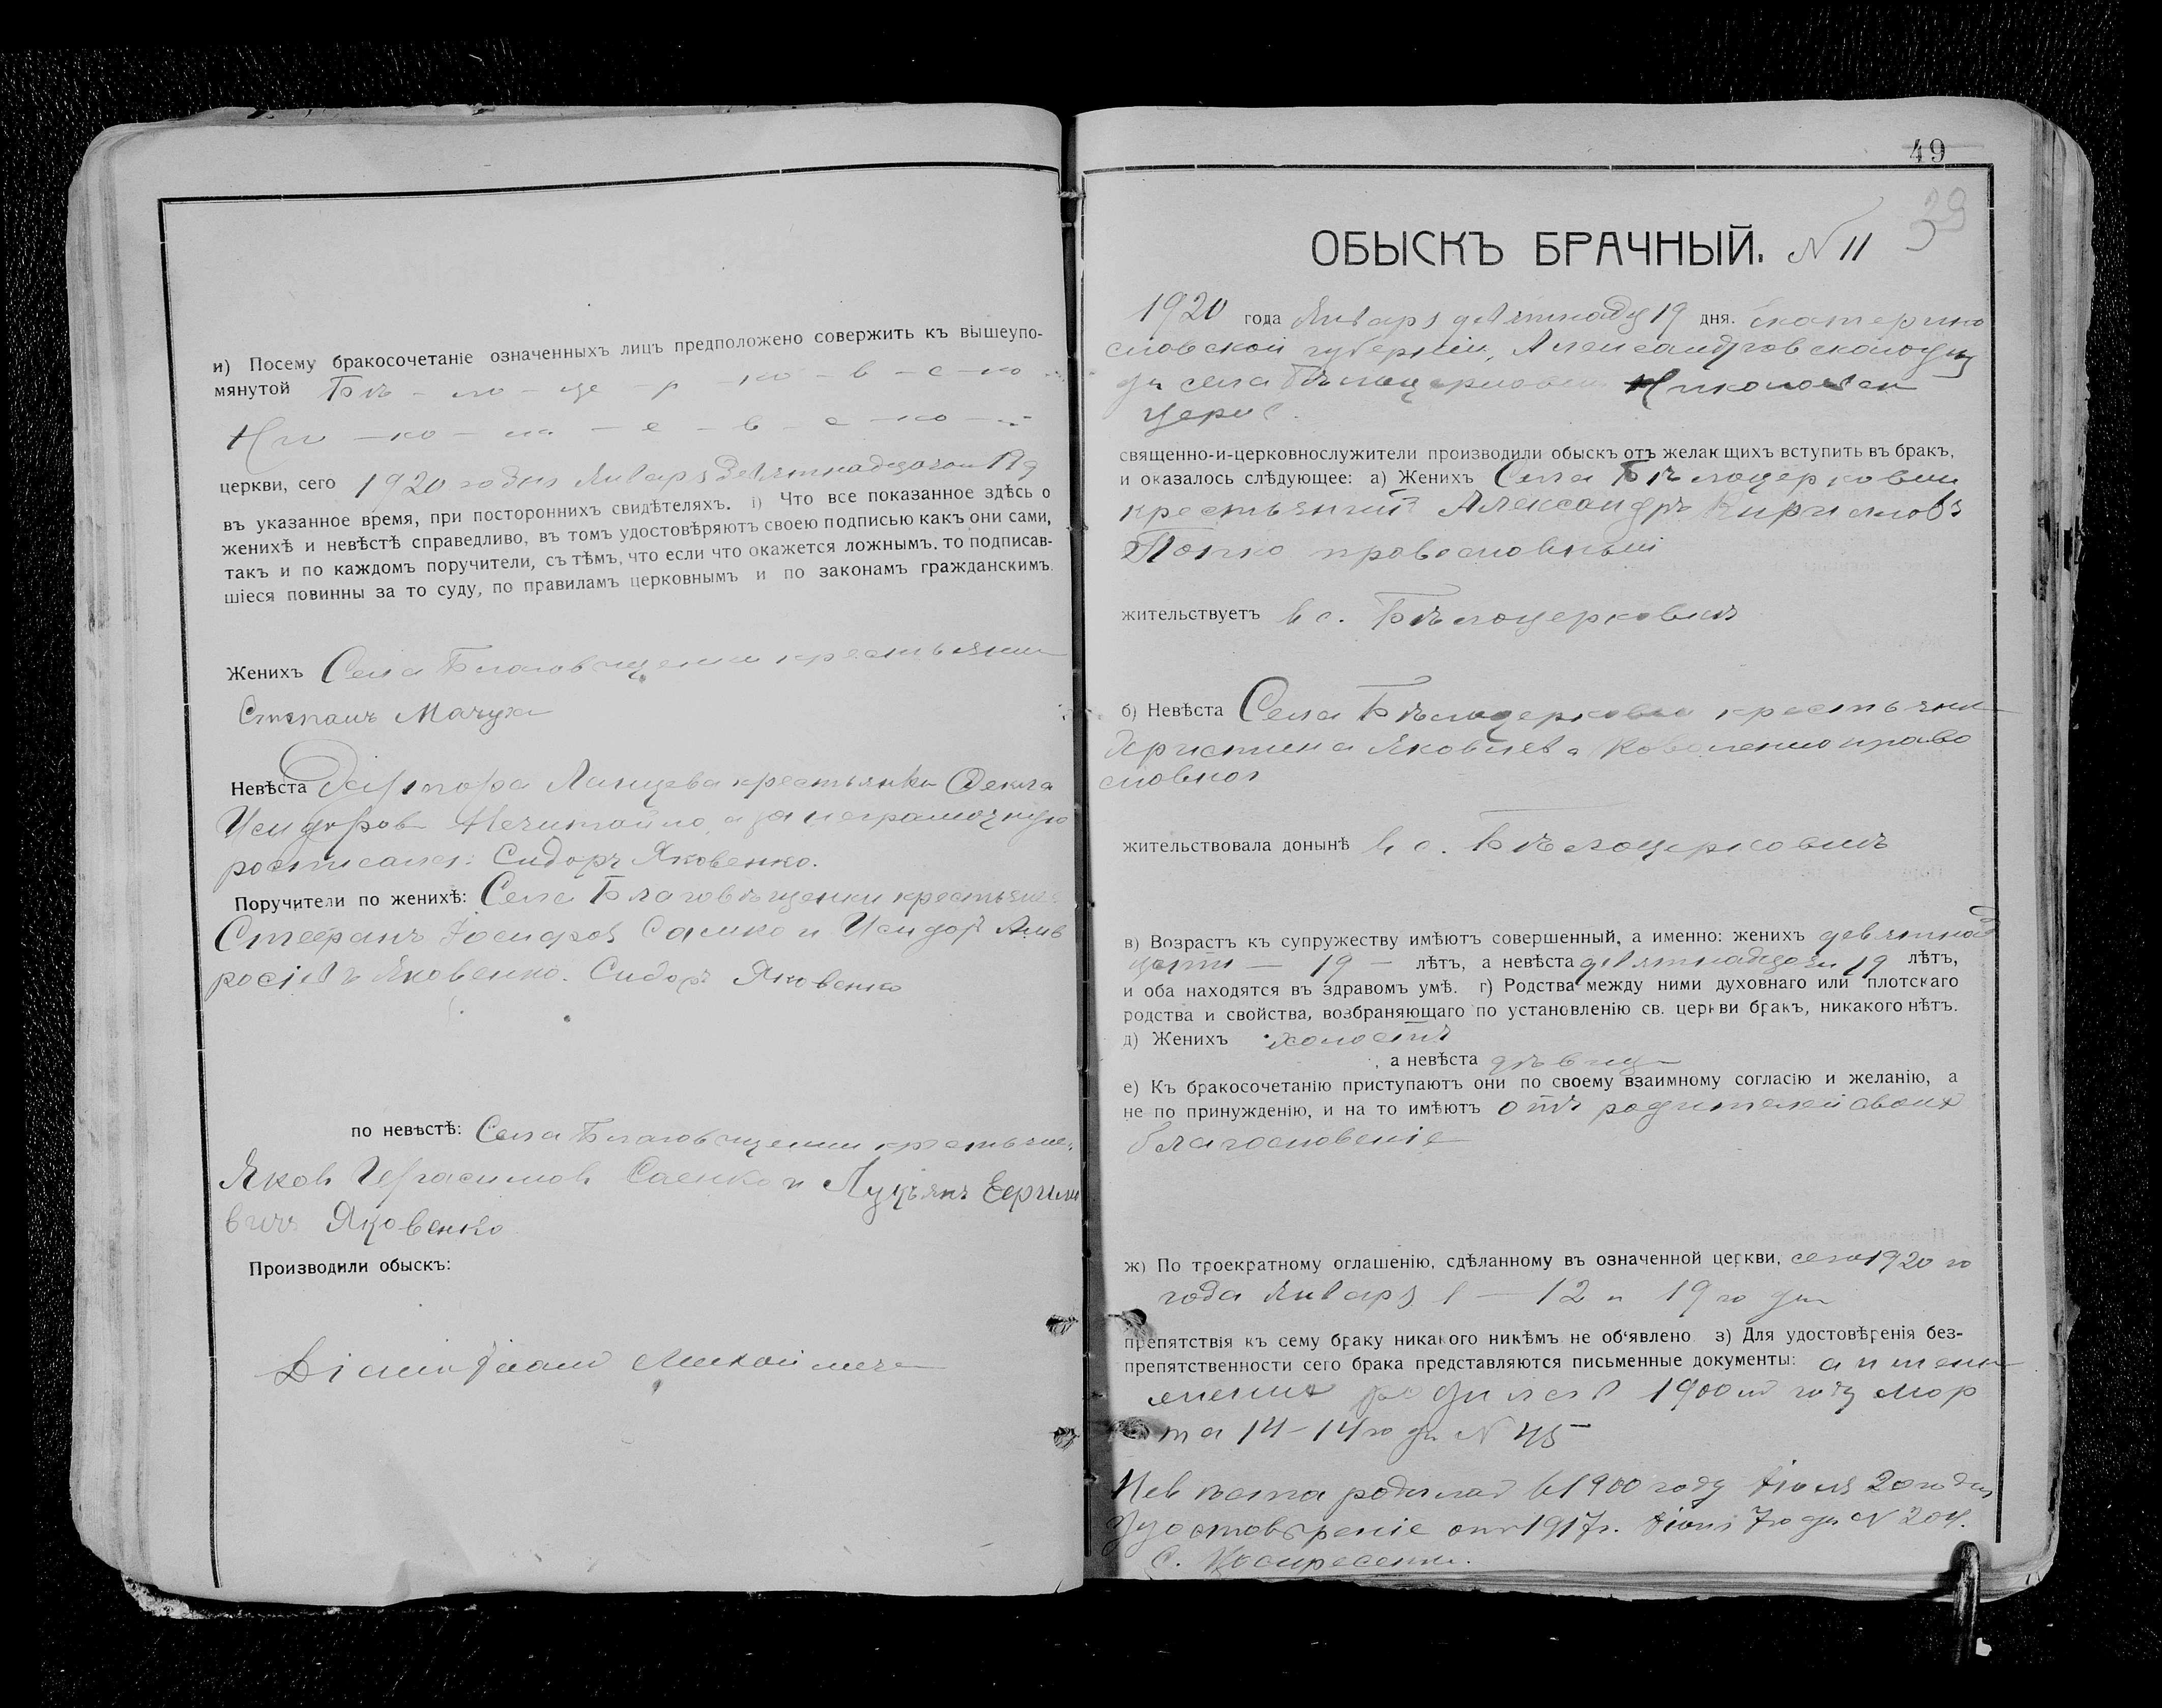 и) Посему бракосочетаніе означенныхъ лицъ предположено совержить къ вышеупо-
мянутой Бѣ - ло - це - р ко - в - с - ко
Ни - ко - ла - е - в - с - ко -
церкви, сего 1920 года Января девятнадцатаго 19 д
въ указанное время, при постороннихъ свидѣтеляхъ. і) Что все показанное здѣсь о
женихѣ и невѣстѣ справедливо, въ томъ удостовѣряютъ своею подписью какъ они сами,
такъ и по каждомъ поручители, съ тѣмъ, что если что окажется ложнымъ, то подписав-
шіеся повинны за то суду, по правиламъ церковнымъ и по законамъ гражданскимъ.
Женихъ Села Благовѣщенки крестьянин
Степанъ Мачуха
Невѣста крестьянка Ѳекла
Исидоров Нечитайло, а за неграмотную
росписался: Сидоръ Яковенко.
Поручители по женихѣ: Села Благовѣщенки крестьяне
Стефанъ Іосифов Самко и Исидоръ Амв
росіевъ Яковенко. Сидоръ Яковенко
по невѣстѣ: Села Благовѣщенки крестьяне
Яковъ Герасимовъ Саенко и Лукъянъ
вичъ Яковенко
Производили обыскъ:
49
39
ОБЫСКЪ БРАЧНЫЙ. N 11
1920 года Января девятнадц 19 дня. Екатерино
славской губерніи, Александровскаго уѣз
да села Бѣлоцерковки Николаевск
церкв.
священно-и-церковнослужители производили обыскъ отъ желающихъ вступить въ бракъ,
и оказалось слѣдующее: а) Женихъ Села Бѣлоцерковки
крестьянинъ Александръ Кирилловъ
Попко православный
жительствуетъ в с. Бѣлоцерковкѣ
б) Невѣста Села Бѣлоцерковки крестьянка
Христина Яковлева Коваленко право
славная
жительствовала донынѣ в с. Бѣлоцерковкѣ
в) Возрастъ къ супружеству имѣютъ совершенный, а именно: женихъ девятнад
цати — 19 — лѣтъ, а невѣста девятнадцати 19 лѣтъ,
и оба находятся въ здравомъ умѣ. г) Родства между ними духовнаго или плотскаго
родства и свойства, возбраняющаго по установленію св. церкви бракъ, никакого нѣтъ.
д) Женихъ холостъ
, а невѣста дѣвица
е) Къ бракосочетанію приступаютъ они по своему взаимному согласію и желанію, а
не по принужденію, и на то имѣютъ отъ родителей своихъ
благословеніе
ж) По троекратному оглашенію, сдѣланному въ означенной церкви, сего 1920 го
года Января 1 — 12 и 19 го дня
препятствія къ сему браку никакого никѣмъ не объявлено з) Для удостовѣренія без-
препятственности сего брака представляются письменные документы: а) и
женихъ родился в 1900 м году мар
та 14 - 14 го дня N 45
Невѣста родилась в 1900 году Іюля 20 го дня
Удостовѣреніе от 1917 г. 7 го дня N 204.
С. Воскресенки.